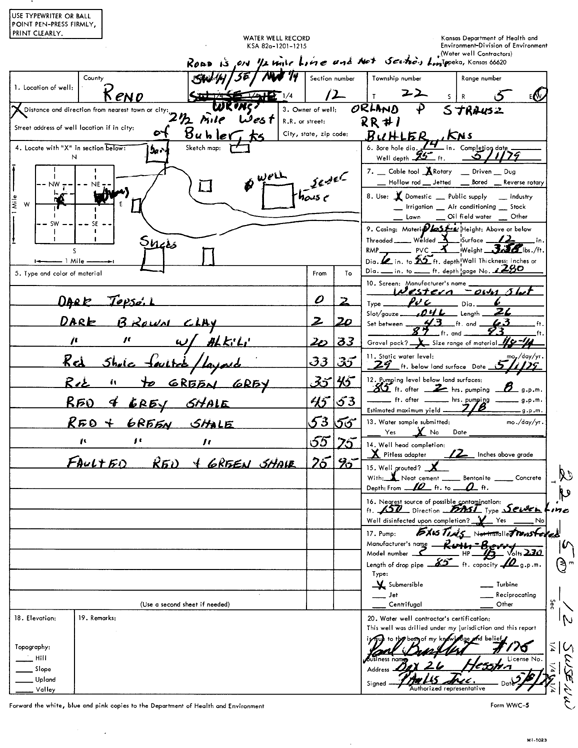 USE TYPEWRITER OR BALL
POINT PEN-PRESS FIRMLY,
PRINT CLEARLY.
WATER WELL RECORD
KSA 82a-1201-1215
Kansas Department of Health and
Environment-Division of Environment
(Water well Contractors)
Topeka, Kansas 66620
ROAD IS ON 1/2 mile Line and Not Section Line
1. Location of well:
County
RENO
SW 1/4 SE 1/4 NW 1/4
1/4
Section number
12
Township number
T 22 S
Range number
R 5 E W
Distance and direction from nearest town or city:
WRONG
2 1/2 mile West
of Buhler, Ks
Street address of well location if in city:
3. Owner of well:
ORLAND P STRAUSZ
R.R. or street:
RR#1
City, state, zip code:
BUHLER, KNS
4. Locate with "X" in section below:
Sketch map:
N
NW
NE
W
E
SW
SE
S
1 Mile
1 Mile
Well
house
sewer
Sheds
6. Bore hole dia. in. Completion date
Well depth 95 ft. 5/1/79
7. Cable tool X Rotary Driven Dug
Hollow rod Jetted Bored Reverse rotary
8. Use: X Domestic Public supply Industry
Irrigation Air conditioning Stock
Lawn Oil field water Other
9. Casing: Material Plastic Height: Above or below
Threaded Welded X Surface 12 in.
RMP PVC X Weight lbs./ft.
Dia. 6 in. to 95 ft. depth Wall Thickness: inches or
Dia. in. to ft. depth gage No. .280
10. Screen: Manufacturer's name
Western - own slot
Type PVC Dia. 6
Slot/gauze .046 Length 26
Set between 43 ft. and 63 ft.
87 ft. and 93 ft.
Gravel pack? X Size range of material
11. Static water level: mo./day/yr.
29 ft. below land surface Date 5/1/79
12. Pumping level below land surfaces:
85 ft. after 2 hrs. pumping 8 g.p.m.
ft. after hrs. pumping g.p.m.
Estimated maximum yield 7/8 g.p.m.
13. Water sample submitted: mo./day/yr.
Yes X No Date
14. Well head completion:
X Pitless adapter 12 Inches above grade
15. Well grouted? X
With: X Neat cement Bentonite Concrete
Depth: From 10 ft. to 0 ft.
16. Nearest source of possible contamination:
ft. 150 Direction EAST Type Sewer Line
Well disinfected upon completion? X Yes No
17. Pump: EXISTING Not installed transfered
Manufacturer's name Ruth-Berry
Model number HP 1/2 Volts 230
Length of drop pipe 85 ft. capacity 10 g.p.m.
Type:
X Submersible Turbine
Jet Reciprocating
Centrifugal Other
5. Type and color of material
From To
DARK Topsoil 0 2
DARK BROWN CLAY 2 20
" " w/ Alkili 20 33
Red Shale faulted/layard 33 35
Red " to GREEN GREY 35 45
RED & GREY SHALE 45 53
RED + GREEN SHALE 53 55
" " " 55 75
FAULTED RED & GREEN SHALE 75 95
(Use a second sheet if needed)
18. Elevation:
19. Remarks:
Topography:
Hill
Slope
Upland
Valley
20. Water well contractor's certification:
This well was drilled under my jurisdiction and this report
is true to the best of my knowledge and belief.
#175
Business name License No.
Address Box 26 Hesston
Signed Inc. 5/8/79
Authorized representative
Forward the white, blue and pink copies to the Department of Health and Environment
Form WWC-5
22
5
E
W
Sec 12
1/4 1/4 1/4
SWSENW